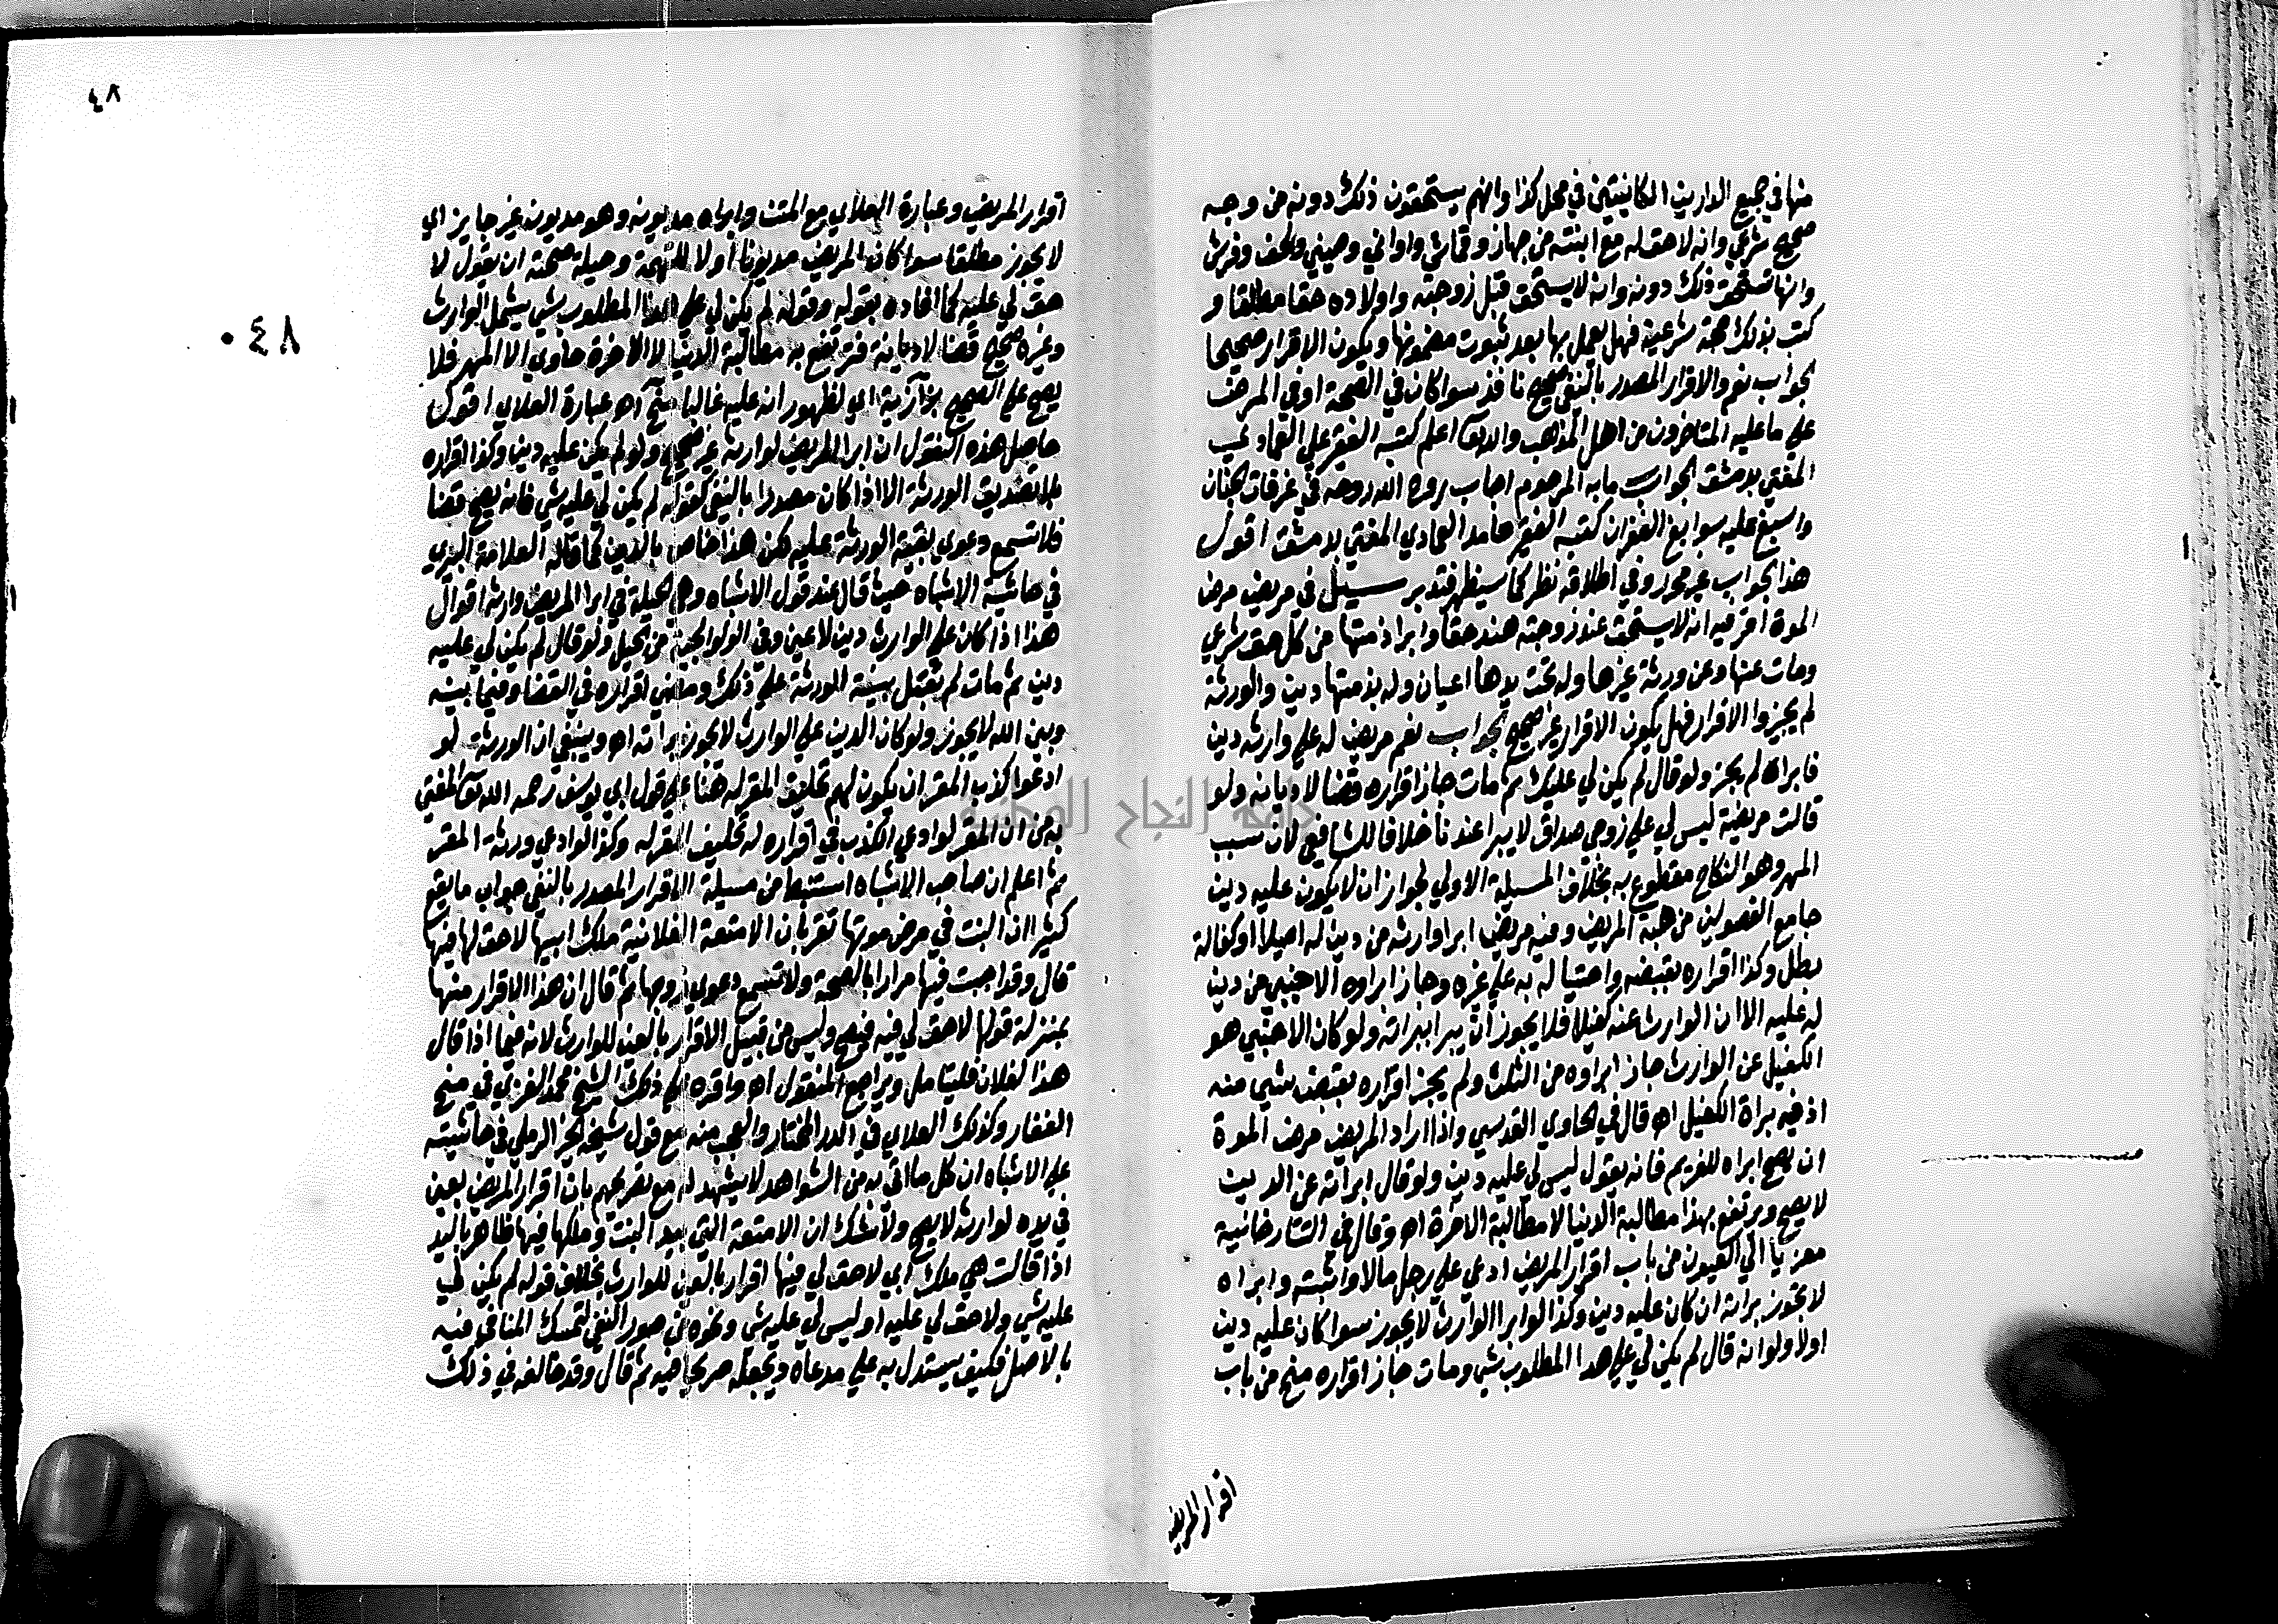 منها في جميع الدارين الكاينتين في محل كذا وانهم يستحقون ذلك دونه من وجه
صحيح شرعي وانه لا حق له مع ابنته من جهاز وقماش واواني وصيني ولحف وفرش
وانها تستحق ذلك دونه وانه لا يستحق قبل زوجته واولاده حقا مطلقا و
كتب بذلك حجة شرعية فهل يعمل بها بعد ثبوت مضمونها ويكون الاقرار صحيحا
الجواب نعم والاقرار المصدر بالنفي صحيح نافذ سوا كان في الصحة او في المرض
علي ما عليه المتاخرون من اهل المذهب والله تعا اعلم كتبه الفقير علي العمادي
المفتي بدمشق الجواب ما به المرحوم اجاب روح الله روحه في غرفات الجنان
واسبغ عليه سوابغ الغفران كتبه الفقير حامد العمادي المفتي بدمشق اقول
هذا الجواب غير محرر وفي اطلاقه نظر كما سيظهر فتدبر سيل في مريض مرض
الموت اقر فيه انه لا يستحق عند زوجته هند حقا وابرا ذمتها من كل حق شرعي
ومات عنها وعن ورثة غيرها وله تحت يدها اعيان وله بذمتها دين والورثة
لم يجيزوا الاقرار فهل يكون الاقرار غير صحيح الجواب نعم مريض له علي وارثه دين
فابراه لم يجز ولو قال لم يكن لي عليك ثم مات جاز اقراره قضا لا ديانه ولو
قالت مريضة ليس لي علي زوجي صداق لا يبرا عندنا خلافا للشافعي لان سبب
المهر وهو النكاح مقطوع به بخلاف المسيلة الاولي لجواز ان لا يكون عليه دين
جامع الفصولين من هبة المريض وفيه مريض ابرا وارثه من دين له اصيلا او كفالة
بطل وكذا اقراره بقبضه واحتياله به علي غيره وجاز ابراوه الاجنبي من دين
له عليه الا ان الوارث عنه كفيلا فلا يجوز ان يبرا ببراته ولو كان الاجنبي هو
الكفيل عن الوارث جاز ابراوه من الثلث ولم يجز اقراره بقبض شيي منه
اذ فيه براة الكفيل اه قال في الحاوي القدسي واذا اراد المريض مرض الموت
ان يصح ابراه للغريم فانه يقول ليس لي عليه دين ولو قال ابراته عن الدين
لا يصح ويرتفع بهذا مطالبة الدنيا لا مطالبة الاخرة اه وقال في التتارخانية
معزيا الي العيون من باب اقرار المريض ادعي علي رجل مالا واثبته وابراه
لا تجوز براته ان كان عليه دين وكذا لو ابرا الوارث لا يجوز سوا كان عليه دين
اولا ولو انه قال لم يكن لي علي هذا المطلوب شي ومات جاز اقراره منح من باب
اقرار المريض
٤٨
٠٤٨
اقرار المريض وعبارة العلاي مع المتن وابراه مديونه وهو مديون غير جايز اي
لا يجوز مطلقا سوا كان المريض مديونا اولا للتهمة وحيلة صحته ان يقول لا
حق لي عليه كما افاده بقوله وقوله لم يكن لي علي هذا المطلوب شي يشمل الوارث
وغيره صحيح قضا لا ديانة فترتفع به مطالبة الدنيا لا الاخرة حاوي الا المهر فلا
يصح علي الصحيح بزازية اي لظهور انه عليه غالبا منح اه عبارة العلاي اقول
حاصل هذه النقول ان ابرا المريض لوارثه غير صحيح ولو لم يكن عليه دين وكذا اقراره
بلا تصديق الورثة الا اذا كان مصدرا بالنفي كقوله لم يكن لي عليه شي فانه يصح قضا
فلا تسمع دعوي بقية الورثة عليه لكن هذا خاص بالدين كما قاله العلامة البيري
في حاشية الاشباه حيث قال عند قول الاشباه وهي الحيلة في ابرا المريض وارثه اقول
هذا اذا كان علي الوارث دين لا عين وفي الولوالجية من الحيل ولو قال لم يكن لي عليه
دين ثم مات لم تقبل بينة الورثة علي ذلك ومعني اقراره في القضا وفيما بينه
وبين الله لا يجوز ولو كان الدين علي الوارث لا يجوز براته اه وينبغي ان الورثة لو
ادعوا كذب المقر ان يكون لهم تحليف المقر له هنا علي قول ابي يوسف رحمه الله تعا المفتي
به من ان المقر لو ادعي الكذب في اقراره له تحليف المقر له وكذا لو ادعي ورثة المقر
ثم اعلم ان صاحب الاشباه استنبط من مسيلة الاقرار المصدر بالنفي جواب ما يقع
كثيرا ان البنت في مرض موتها تقر بان الامتعة الفلانية ملك ابيها لا حق لها فيها
قال وقد اجبت فيها مرارا بالصحة ولا تسمع دعوي زوجها ثم قال ان هذا الاقرار منها
بمنزلة قولها لا حق لي فيه فيصح وليس من قبيل الاقرار بالعين للوارث لانه فيما اذا قال
هذا لفلان فليتامل ويراجع المنقول اه واقره علي ذلك الشيخ محمد الغزي في منح
الغفار وكذلك العلاي في الدر المختار والعجب منه مع قول شيخه الخير الرملي في حاشيته
علي الاشباه ان كل ما اتي به من الشواهد لا يشهد له مع تصريحهم بان اقرار المريض بعين
في يده لوارثه لا يصح ولا شك ان الامتعة التي بيد البنت وملكها فيها ظاهر باليد
اذا قالت هي ملك ابي لا حق لي فيها اقرار بالعين للوارث بخلاف قوله لم يكن لي
عليه شي ولا حق لي عليه او ليس لي عليه شي ونحوه في صور النفي لتمسك المنافي فيه
بالاصل فكيف يستدل به علي مدعاه ويجعله صريحا فيه ثم قال وقد خالفه في ذلك